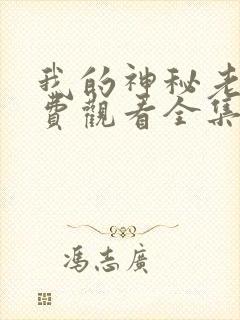 我的神秘老
費觀看全集
馮志廣